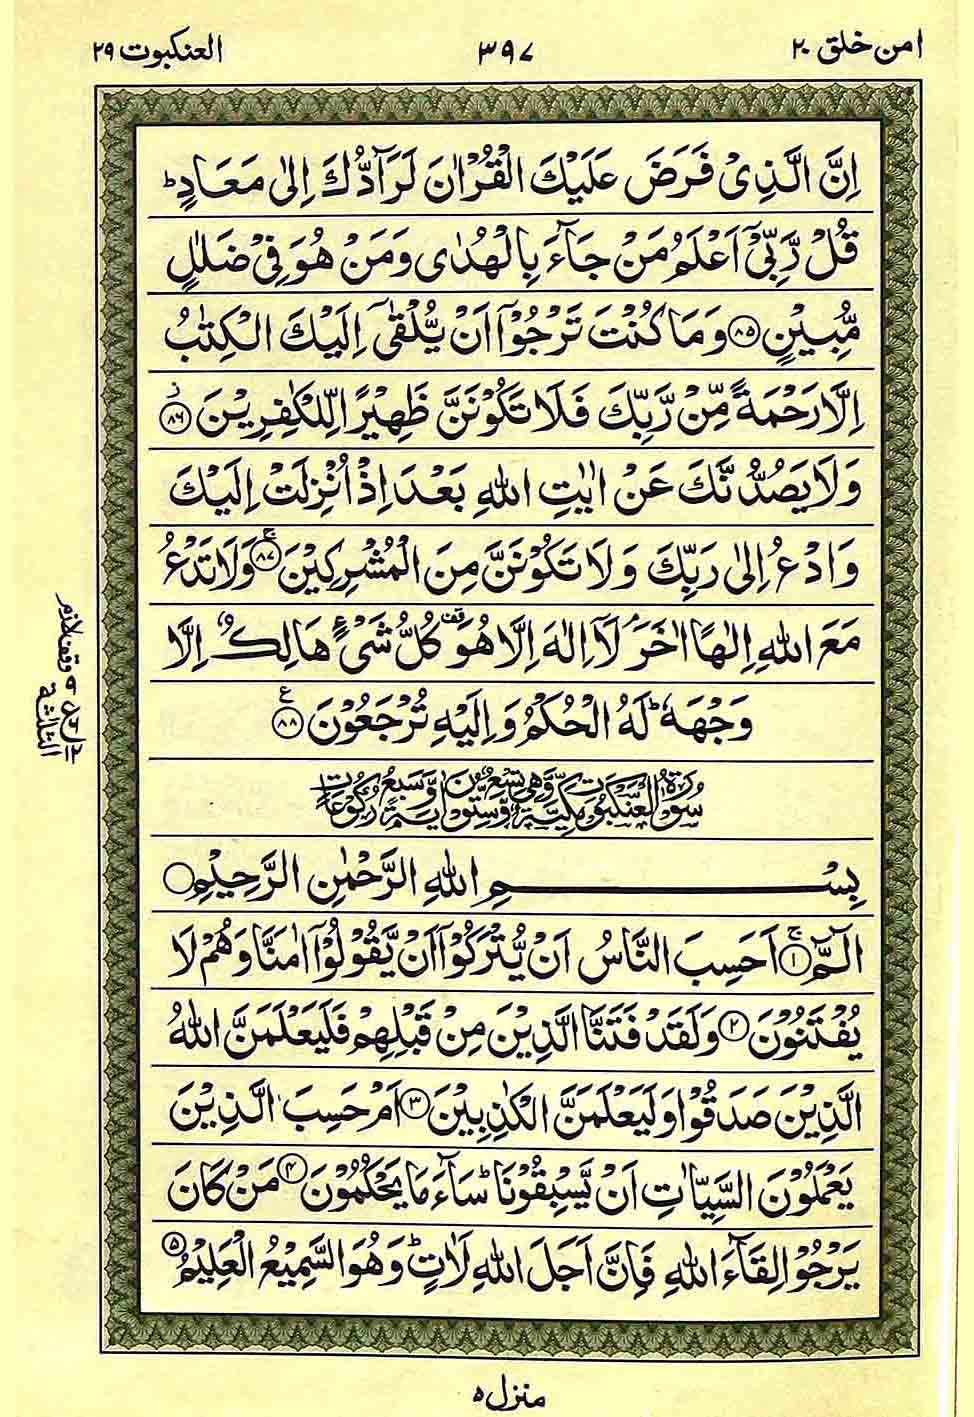 امن خلق ۲۰
۳۹۷
العنكبوت ۲۹
اِنَّ الَّذِىْ فَرَضَ عَلَيْكَ الْقُرْاٰنَ لَرَآدُّكَ اِلٰى مَعَادٍ ؕ
قُلْ رَّبِّىْۤ اَعْلَمُ مَنْ جَآءَ بِالْهُدٰى وَمَنْ هُوَ فِىْ ضَلٰلٍ
مُّبِيْنٍ ۝۸۵ وَمَا كُنْتَ تَرْجُوْۤا اَنْ يُّلْقٰۤى اِلَيْكَ الْكِتٰبُ
اِلَّا رَحْمَةً مِّنْ رَّبِّكَ فَلَا تَكُوْنَنَّ ظَهِيْرًا لِّلْكٰفِرِيْنَ ۝۸۶ ز
وَلَا يَصُدُّنَّكَ عَنْ اٰيٰتِ اللّٰهِ بَعْدَ اِذْ اُنْزِلَتْ اِلَيْكَ
وَادْعُ اِلٰى رَبِّكَ وَلَا تَكُوْنَنَّ مِنَ الْمُشْرِكِيْنَ ۝۸۷ ۚ وَلَا تَدْعُ
مَعَ اللّٰهِ اِلٰهًا اٰخَرَ ۘ لَاۤ اِلٰهَ اِلَّا هُوَ قف كُلُّ شَىْءٍ هَالِكٌ اِلَّا
وَجْهَهٗ ؕ لَهُ الْحُكْمُ وَاِلَيْهِ تُرْجَعُوْنَ ۝۸۸ ع
سُوْرَةُ الْعَنْكَبُوْتِ مَكِّيَّةٌ وَّهِىَ تِسْعٌ وَّسِتُّوْنَ اٰيَةً وَّسَبْعُ رُكُوْعَاتٍ
بِسْمِ اللّٰهِ الرَّحْمٰنِ الرَّحِيْمِ ۝
الٓمّٓ ۝۱ ۚ اَحَسِبَ النَّاسُ اَنْ يُّتْرَكُوْۤا اَنْ يَّقُوْلُوْۤا اٰمَنَّا وَهُمْ لَا
يُفْتَنُوْنَ ۝۲ وَلَقَدْ فَتَنَّا الَّذِيْنَ مِنْ قَبْلِهِمْ فَلَيَعْلَمَنَّ اللّٰهُ
الَّذِيْنَ صَدَقُوْا وَلَيَعْلَمَنَّ الْكٰذِبِيْنَ ۝۳ اَمْ حَسِبَ الَّذِيْنَ
يَعْمَلُوْنَ السَّيِّاٰتِ اَنْ يَّسْبِقُوْنَا ؕ سَآءَ مَا يَحْكُمُوْنَ ۝۴ مَنْ كَانَ
يَرْجُوْا لِقَآءَ اللّٰهِ فَاِنَّ اَجَلَ اللّٰهِ لَاٰتٍ ؕ وَهُوَ السَّمِيْعُ الْعَلِيْمُ ۝۵
وقف لازم
الثلثة
منزل ۵